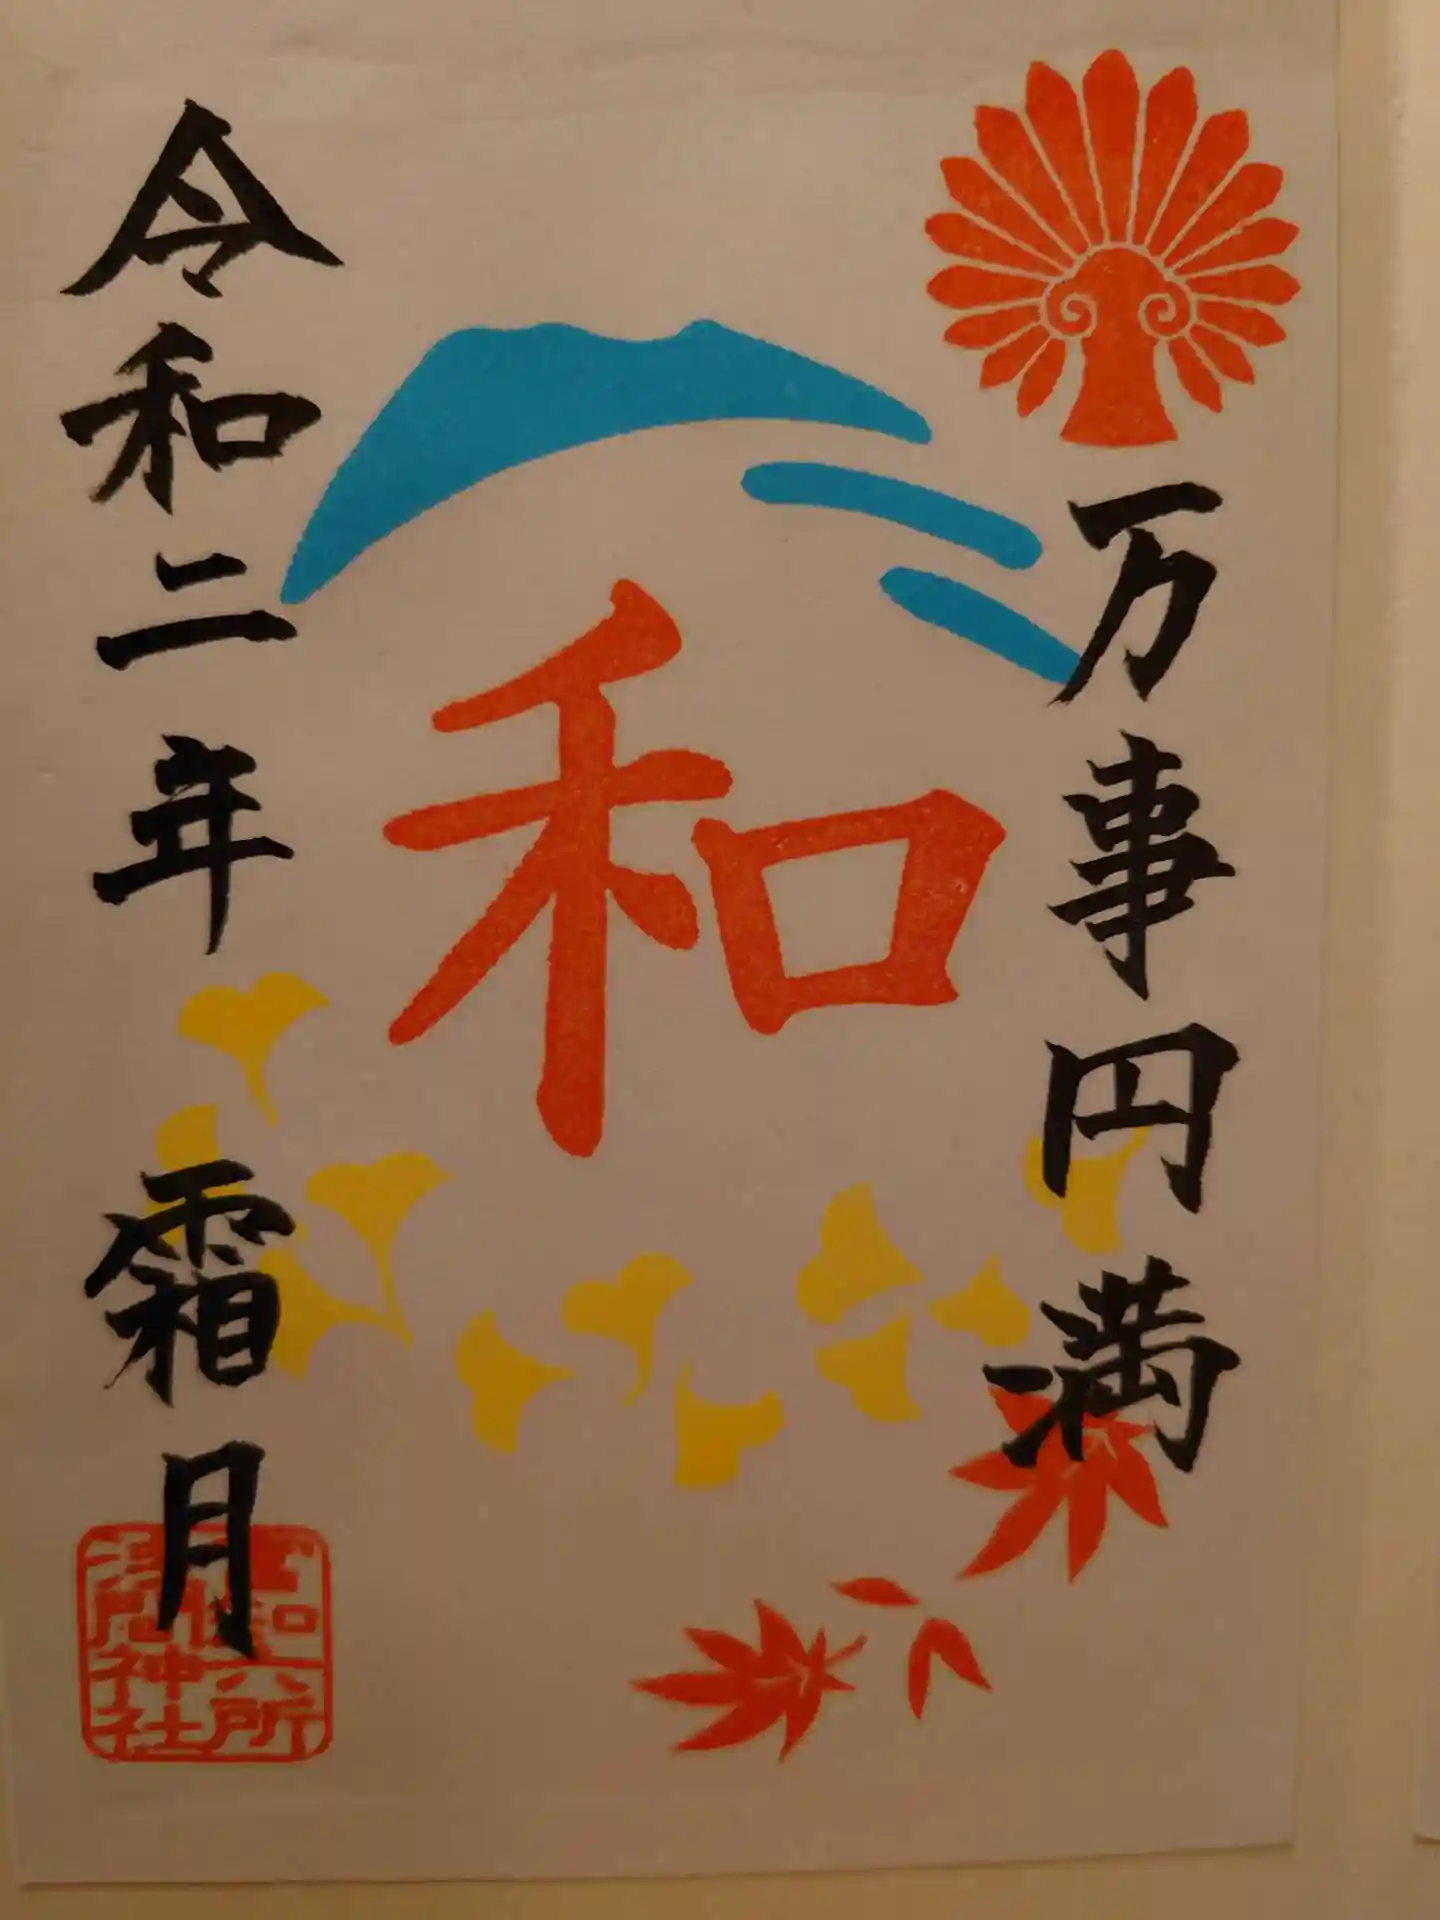 万事円満
和
令和二年 霜月
浅間神社